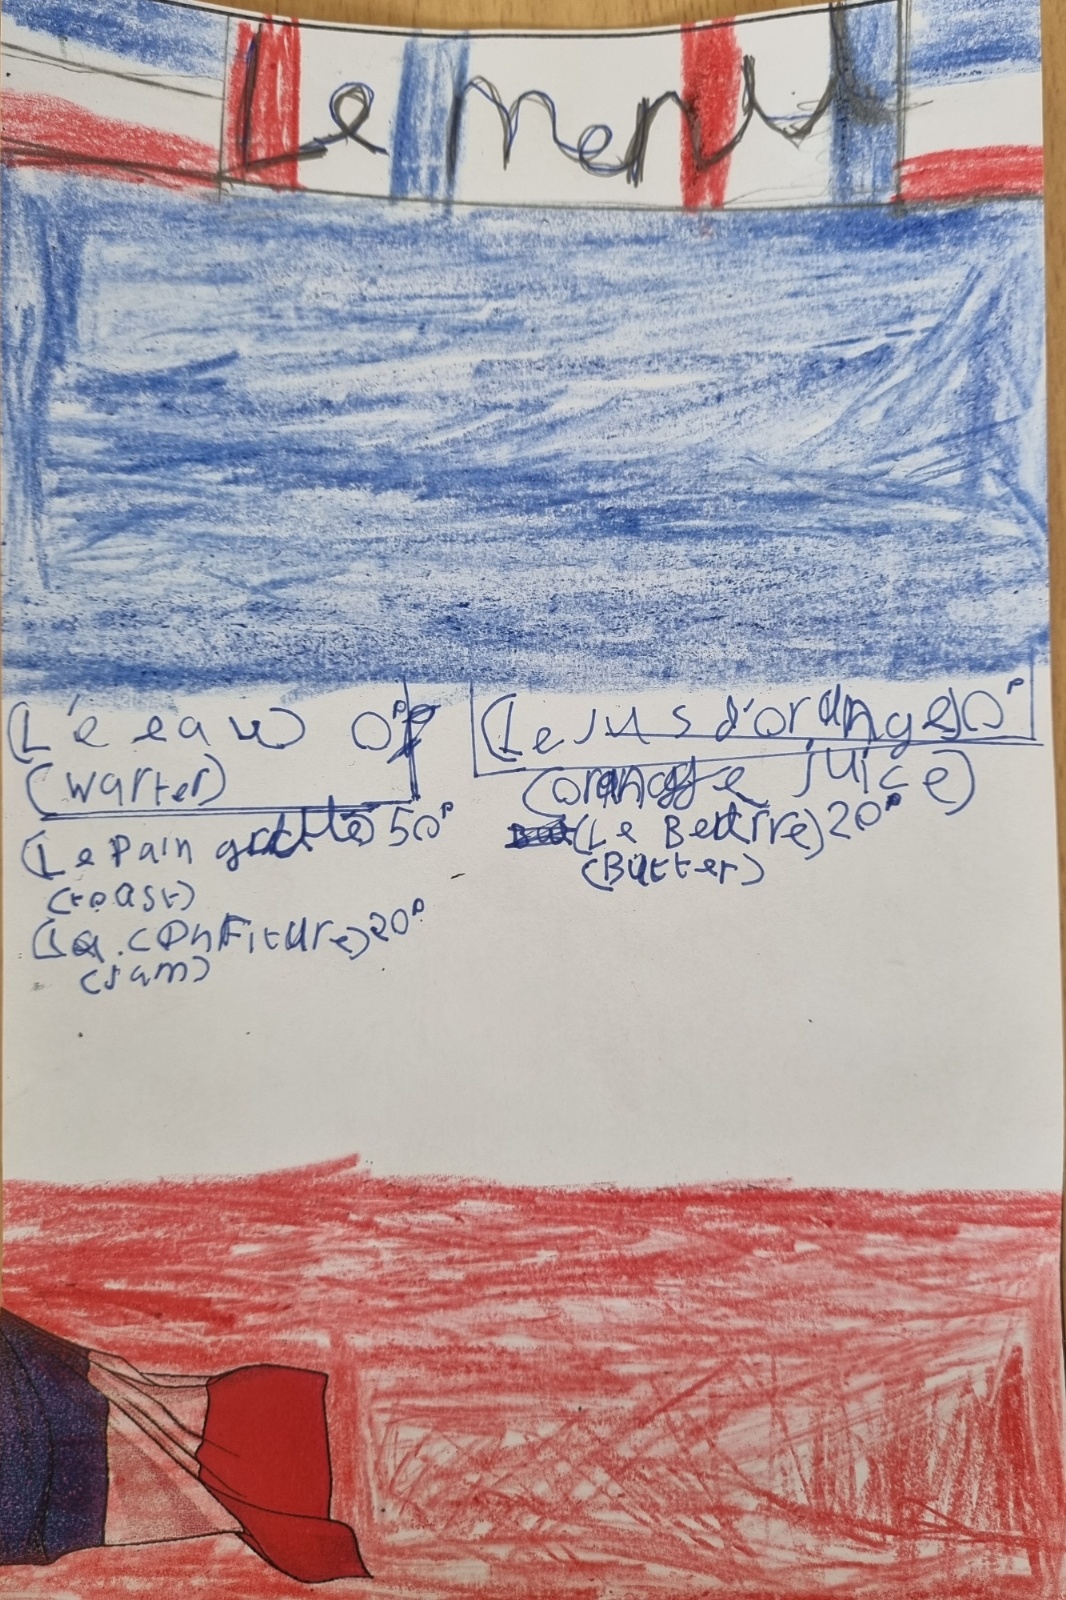 Le menu
(L'é eau) 0p
(warter)
(Le Jus d'orange) 90p
(orange juice)
(Le Pain grillé) 50p
(toast)
(La confiture) 20p
(Jam)
(Le Beurre) 20p
(Butter)